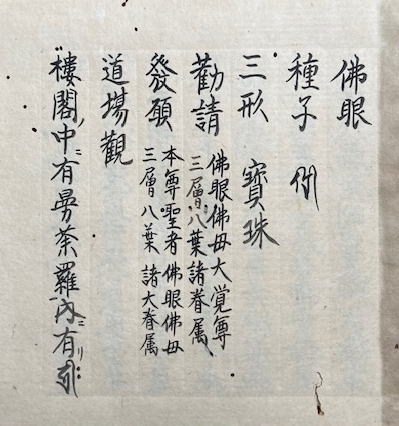 佛眼
種子
三形 寶珠
勸請 佛眼佛母大覚尊
三層八葉諸眷属
發願 本尊聖者佛眼佛母
三層八葉諸大眷属
道場觀
樓閣ノ中ニ有曼荼羅内ニ有リ